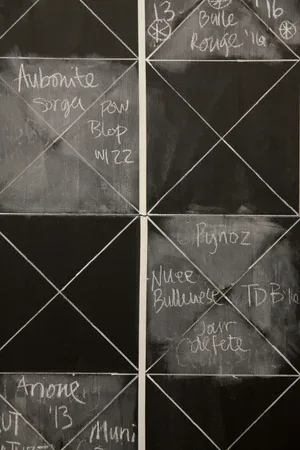 13
'16
Bulle
Rouge '16
Aubonite
Sorga
POW
Blop
W122
Pynoz
Nuee
Bulleuse
TDB
Jair
defete
Anone
'13
Muni